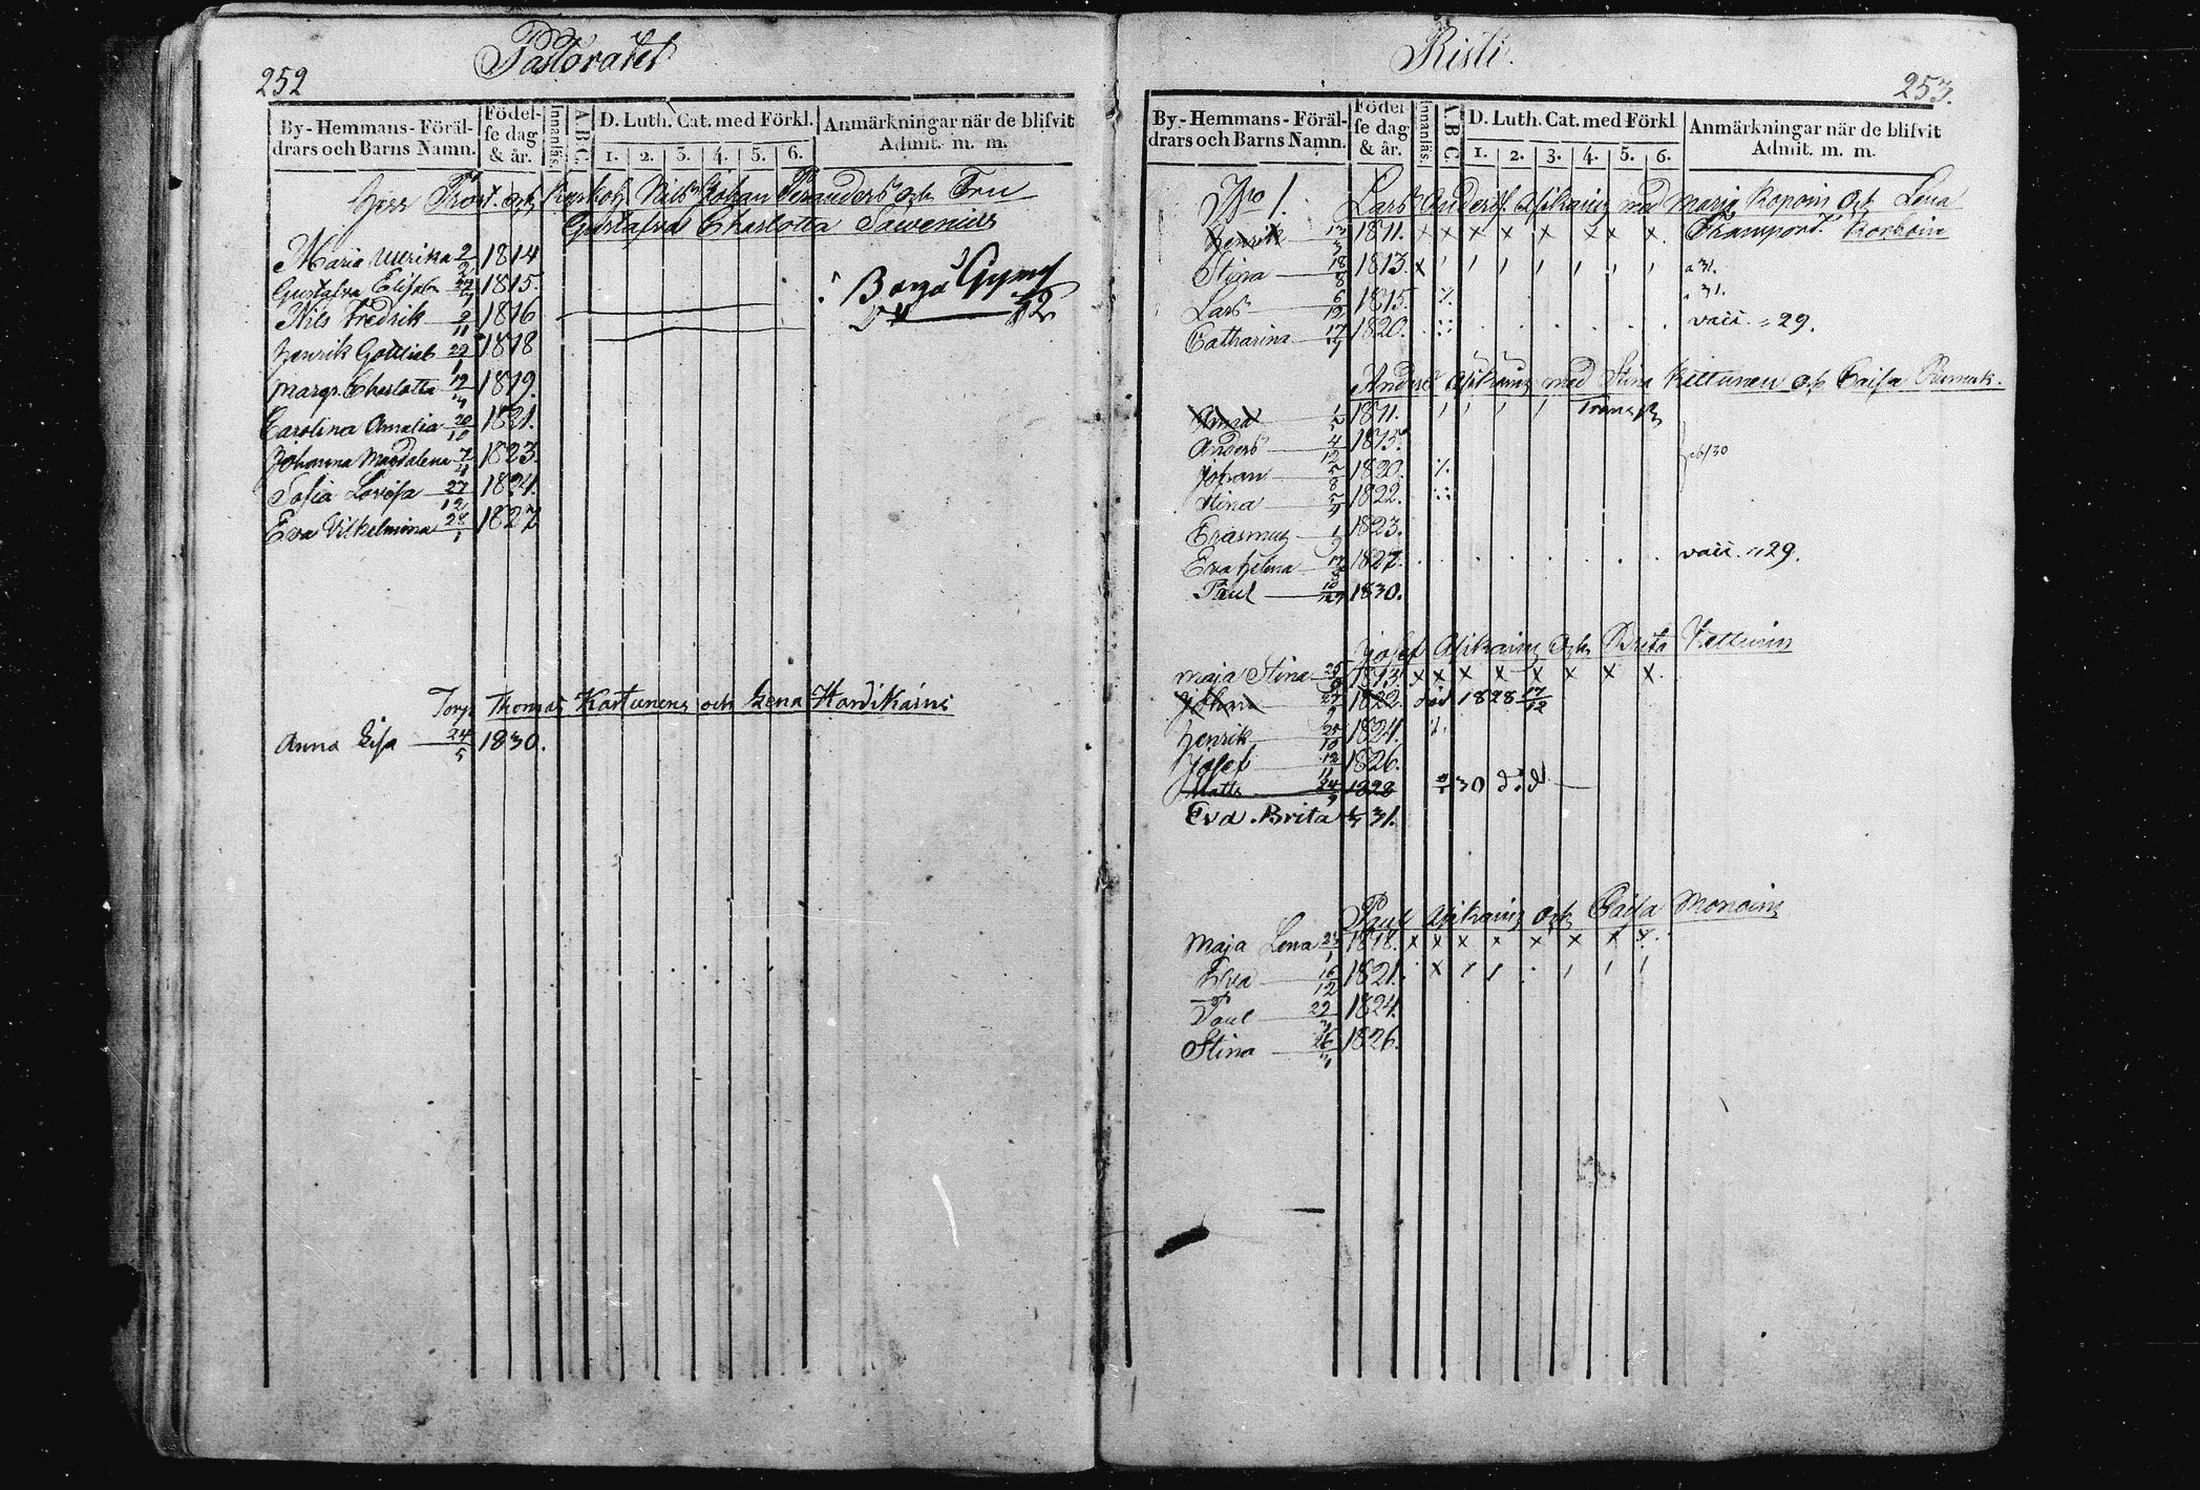 252
Pastoratet
By-Hemmans-Föräl-
drars och Barns Namn.
Födel-
se dag
& år.
Innanläs.
A B C.
D. Luth. Cat. med Förkl.
1. 2. 3. 4. 5. 6.
Anmärkningar när de blifvit
Admit. m. m.
Herr Prost. och Nils Johan Perander och Fru
Gustafva Charlotta Sawenius
Maria Ulrika 2/2 1814
Gustafva Elisab 1815.
Nils Fredrik 9/11 1816
Borgå Gymn
Henrik Gottlieb 1818
Margr. Charlotta 1819.
Carolina Amalia 20/10 1821.
Johanna Magdalena 1823.
Sofia Lovisa 27/12 1824.
Eva Vilhelmina 28/1 1827
Torp. Thomas Kartunens och Lena Hardikains
Anna Lisa 24/5 1830.
Risti.
253.
By-Hemmans-Föräl-
drars och Barns Namn.
Födel-
se dag
& år.
Innanläs.
A B C.
D. Luth. Cat. med Förkl
1. 2. 3. 4. 5. 6.
Anmärkningar när de blifvit
Admit. m. m.
Nro 1. Lars Anderss. Asikains med Maria Kopoin och Lena
Henrik 1811. x x x x x x x x. Transport. Korhoin
Stina 18/8 1813. x a 31.
Lars 6/12 1815. ٪ 31.
Catharina 1820. vacc. 29.
Anders Asikains med Stina Kettunen och Caisa
Anna 1811. Transp.
Anders 4/12 1815.
Johan 5/8 1820. ٪
Stina 1822.
Erasmus 1/9 1823.
Eva Helena 1827. vacc. 29.
Paul 1830.
Josef Asikains och Brita Kettuins
Maja Stina 1813. x x x x x x x x.
Johan 1822. död 1828 17/12
Henrik 25/10 1824. ٪
Josef 12/11 1826.
Matts 1828 30 död
Eva Brita 31.
Paul Asikains och Caisa Monoins
Maja Lena 1818. x x x x x x x x.
Eva 16/12 1821. x
Paul 1824.
Stina 1826.